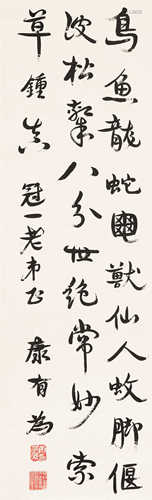 鳥魚龍蛇龜獸仙人蚊脚偃
波松鄴八分世絶常妙索
草鍾真
冠一老弟正
康有為